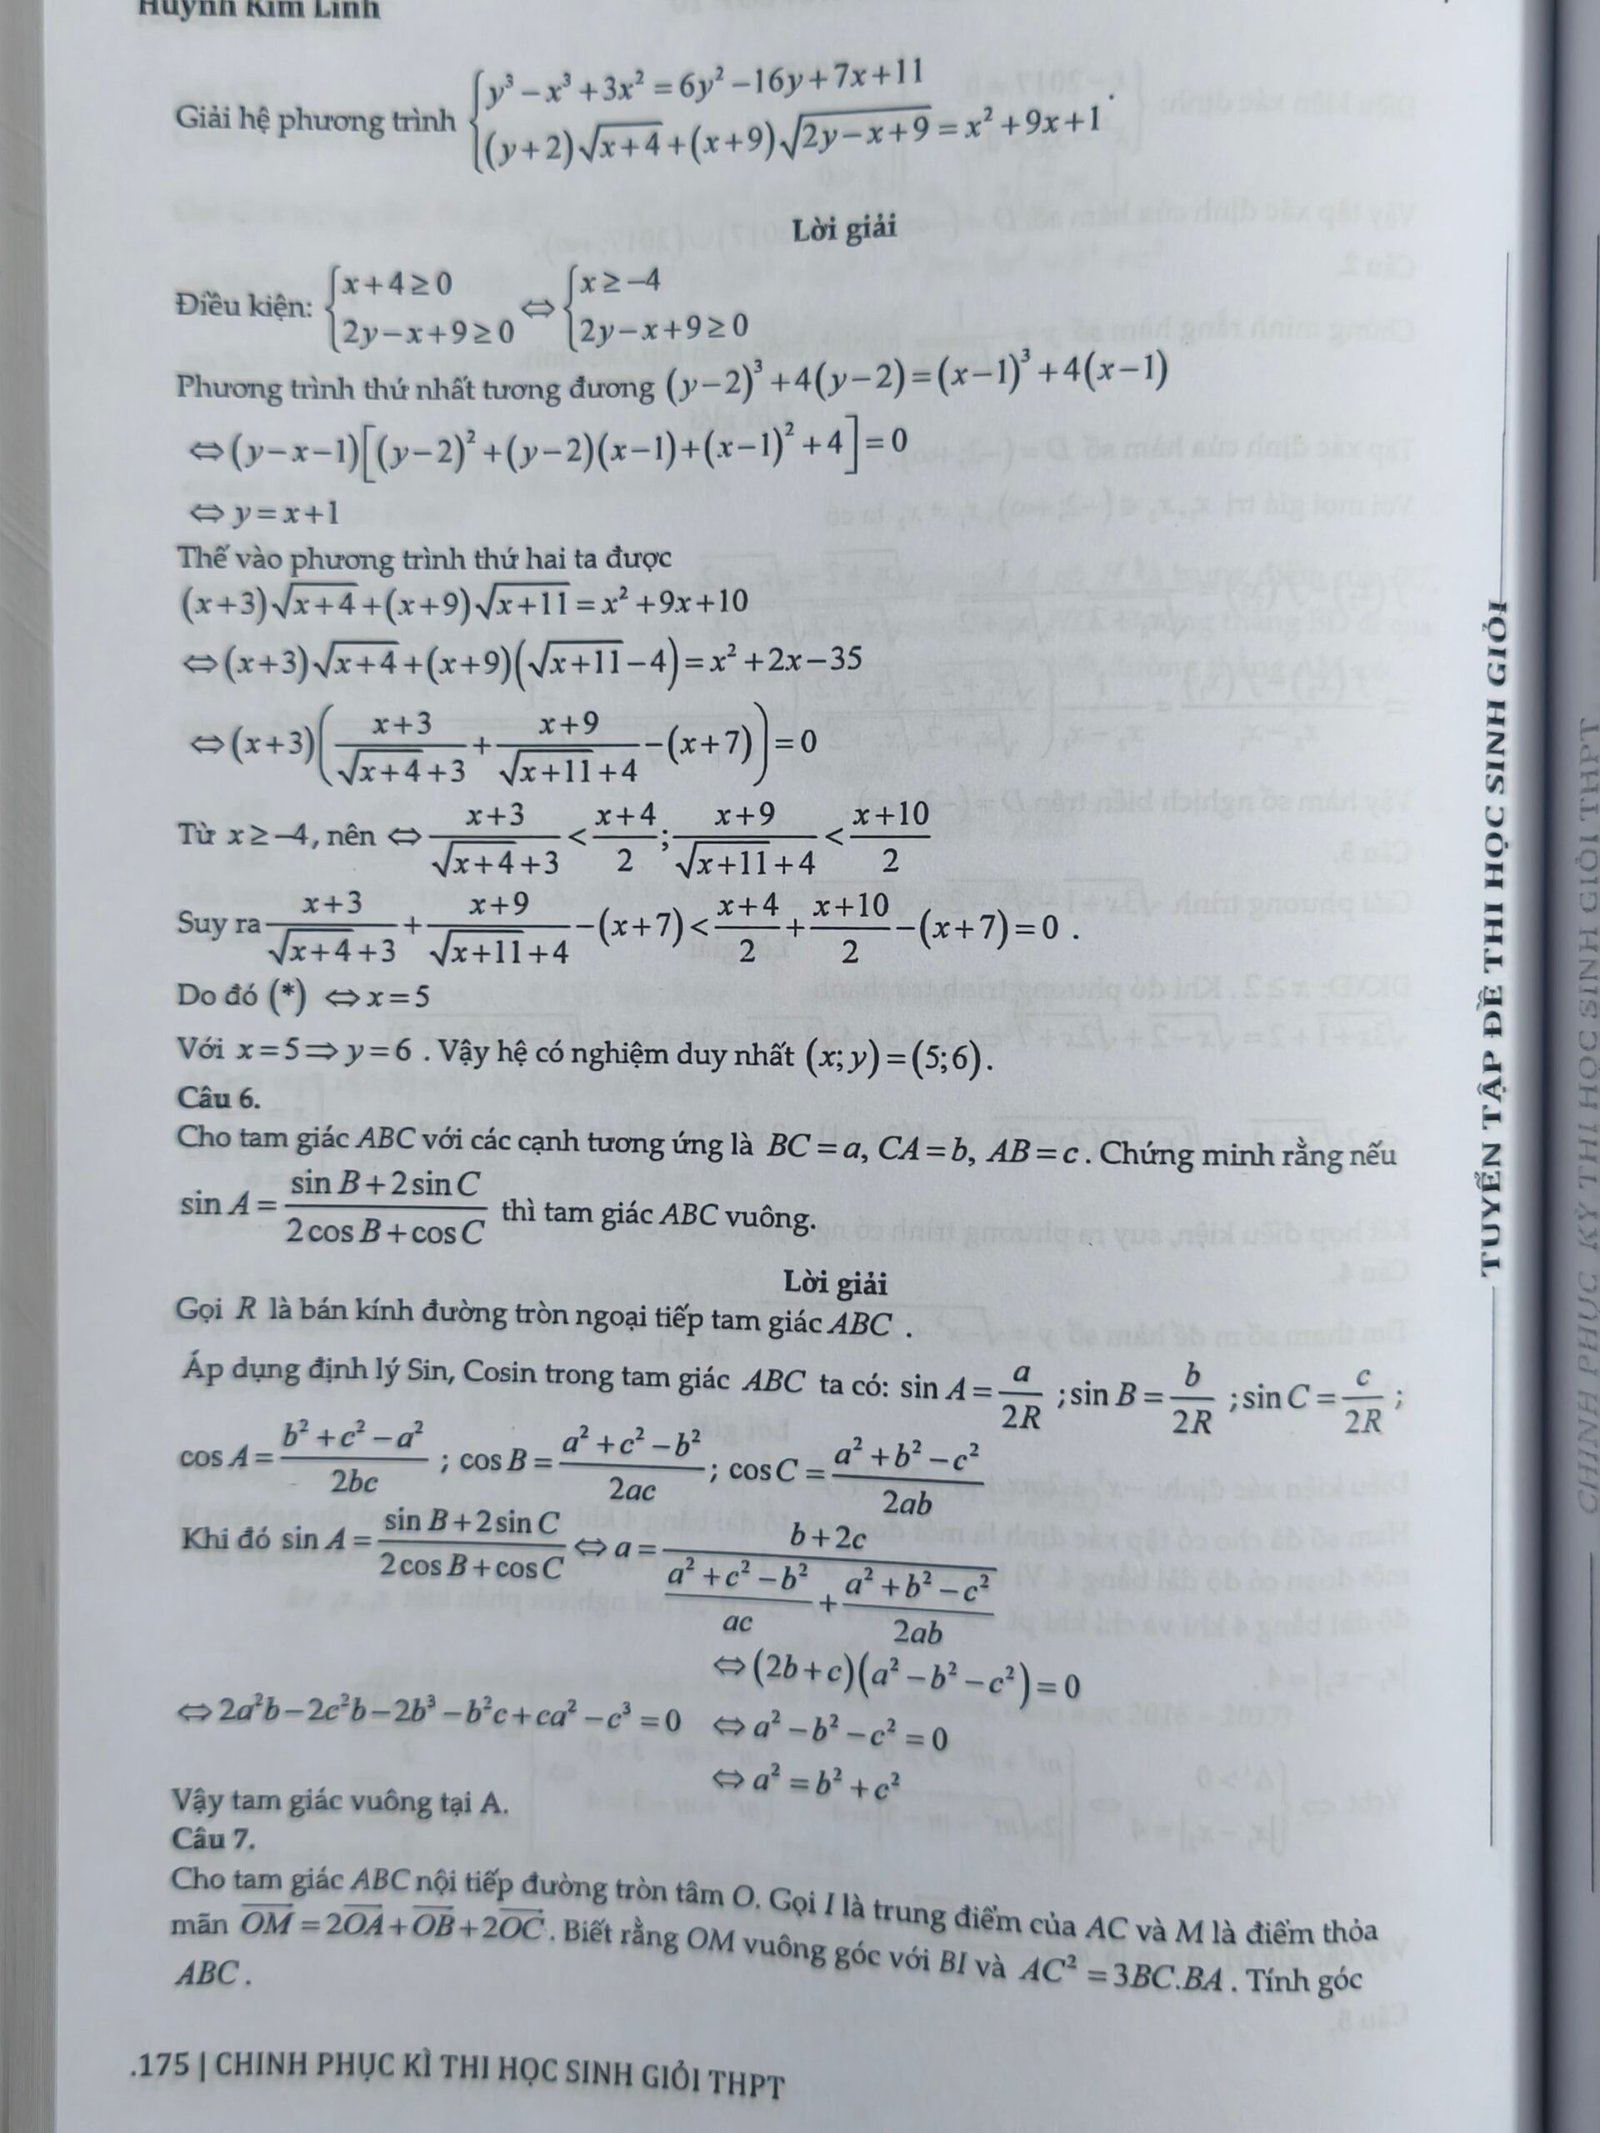 Huỳnh Kim Linh
Giải hệ phương trình { y³ − x³ + 3x² = 6y² − 16y + 7x + 11
(y+2)√(x+4) + (x+9)√(2y−x+9) = x² + 9x + 1 .
Lời giải
Điều kiện: { x+4 ≥ 0 ; 2y−x+9 ≥ 0 ⇔ { x ≥ −4 ; 2y−x+9 ≥ 0
Phương trình thứ nhất tương đương (y−2)³ + 4(y−2) = (x−1)³ + 4(x−1)
⇔ (y−x−1)[(y−2)² + (y−2)(x−1) + (x−1)² + 4] = 0
⇔ y = x+1
Thế vào phương trình thứ hai ta được
(x+3)√(x+4) + (x+9)√(x+11) = x² + 9x + 10
⇔ (x+3)√(x+4) + (x+9)(√(x+11) − 4) = x² + 2x − 35
⇔ (x+3)((x+3)/(√(x+4)+3) + (x+9)/(√(x+11)+4) − (x+7)) = 0
Từ x ≥ −4, nên ⇔ (x+3)/(√(x+4)+3) < (x+4)/2 ; (x+9)/(√(x+11)+4) < (x+10)/2
Suy ra (x+3)/(√(x+4)+3) + (x+9)/(√(x+11)+4) − (x+7) < (x+4)/2 + (x+10)/2 − (x+7) = 0 .
Do đó (*) ⇔ x = 5
Với x = 5 ⇒ y = 6 . Vậy hệ có nghiệm duy nhất (x; y) = (5;6).
Câu 6.
Cho tam giác ABC với các cạnh tương ứng là BC = a, CA = b, AB = c . Chứng minh rằng nếu
sin A = (sin B + 2 sin C)/(2 cos B + cos C) thì tam giác ABC vuông.
Lời giải
Gọi R là bán kính đường tròn ngoại tiếp tam giác ABC .
Áp dụng định lý Sin, Cosin trong tam giác ABC ta có: sin A = a/2R ; sin B = b/2R ; sin C = c/2R ;
cos A = (b² + c² − a²)/2bc ; cos B = (a² + c² − b²)/2ac ; cos C = (a² + b² − c²)/2ab
Khi đó sin A = (sin B + 2 sin C)/(2 cos B + cos C) ⇔ a = (b + 2c)/((a² + c² − b²)/ac + (a² + b² − c²)/2ab)
⇔ (2b + c)(a² − b² − c²) = 0
⇔ 2a²b − 2c²b − 2b³ − b²c + ca² − c³ = 0 ⇔ a² − b² − c² = 0
⇔ a² = b² + c²
Vậy tam giác vuông tại A.
Câu 7.
Cho tam giác ABC nội tiếp đường tròn tâm O. Gọi I là trung điểm của AC và M là điểm thỏa
mãn OM⃗ = 2OA⃗ + OB⃗ + 2OC⃗ . Biết rằng OM vuông góc với BI và AC² = 3BC.BA . Tính góc
ABC .
.175 | CHINH PHỤC KÌ THI HỌC SINH GIỎI THPT
TUYỂN TẬP ĐỀ THI HỌC SINH GIỎI
CHINH PHỤC KỲ THI HỌC SINH GIỎI THPT